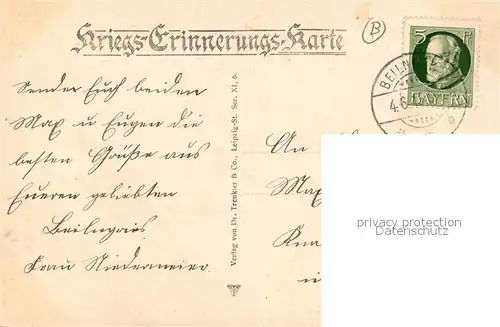 Kriegs-Erinnerungs-Karte
B
5 Pf
BAYERN
BEILN
4.6
Sender Euch beiden
Max u Eugen die
besten Grüße aus
Eueren geliebten
Beilngries
Frau Niedermeier
Verlag von Dr. Trenkler & Co., Leipzig-St. Ser. XI, 6.
An
Max
Kna
privacy protection
Datenschutz